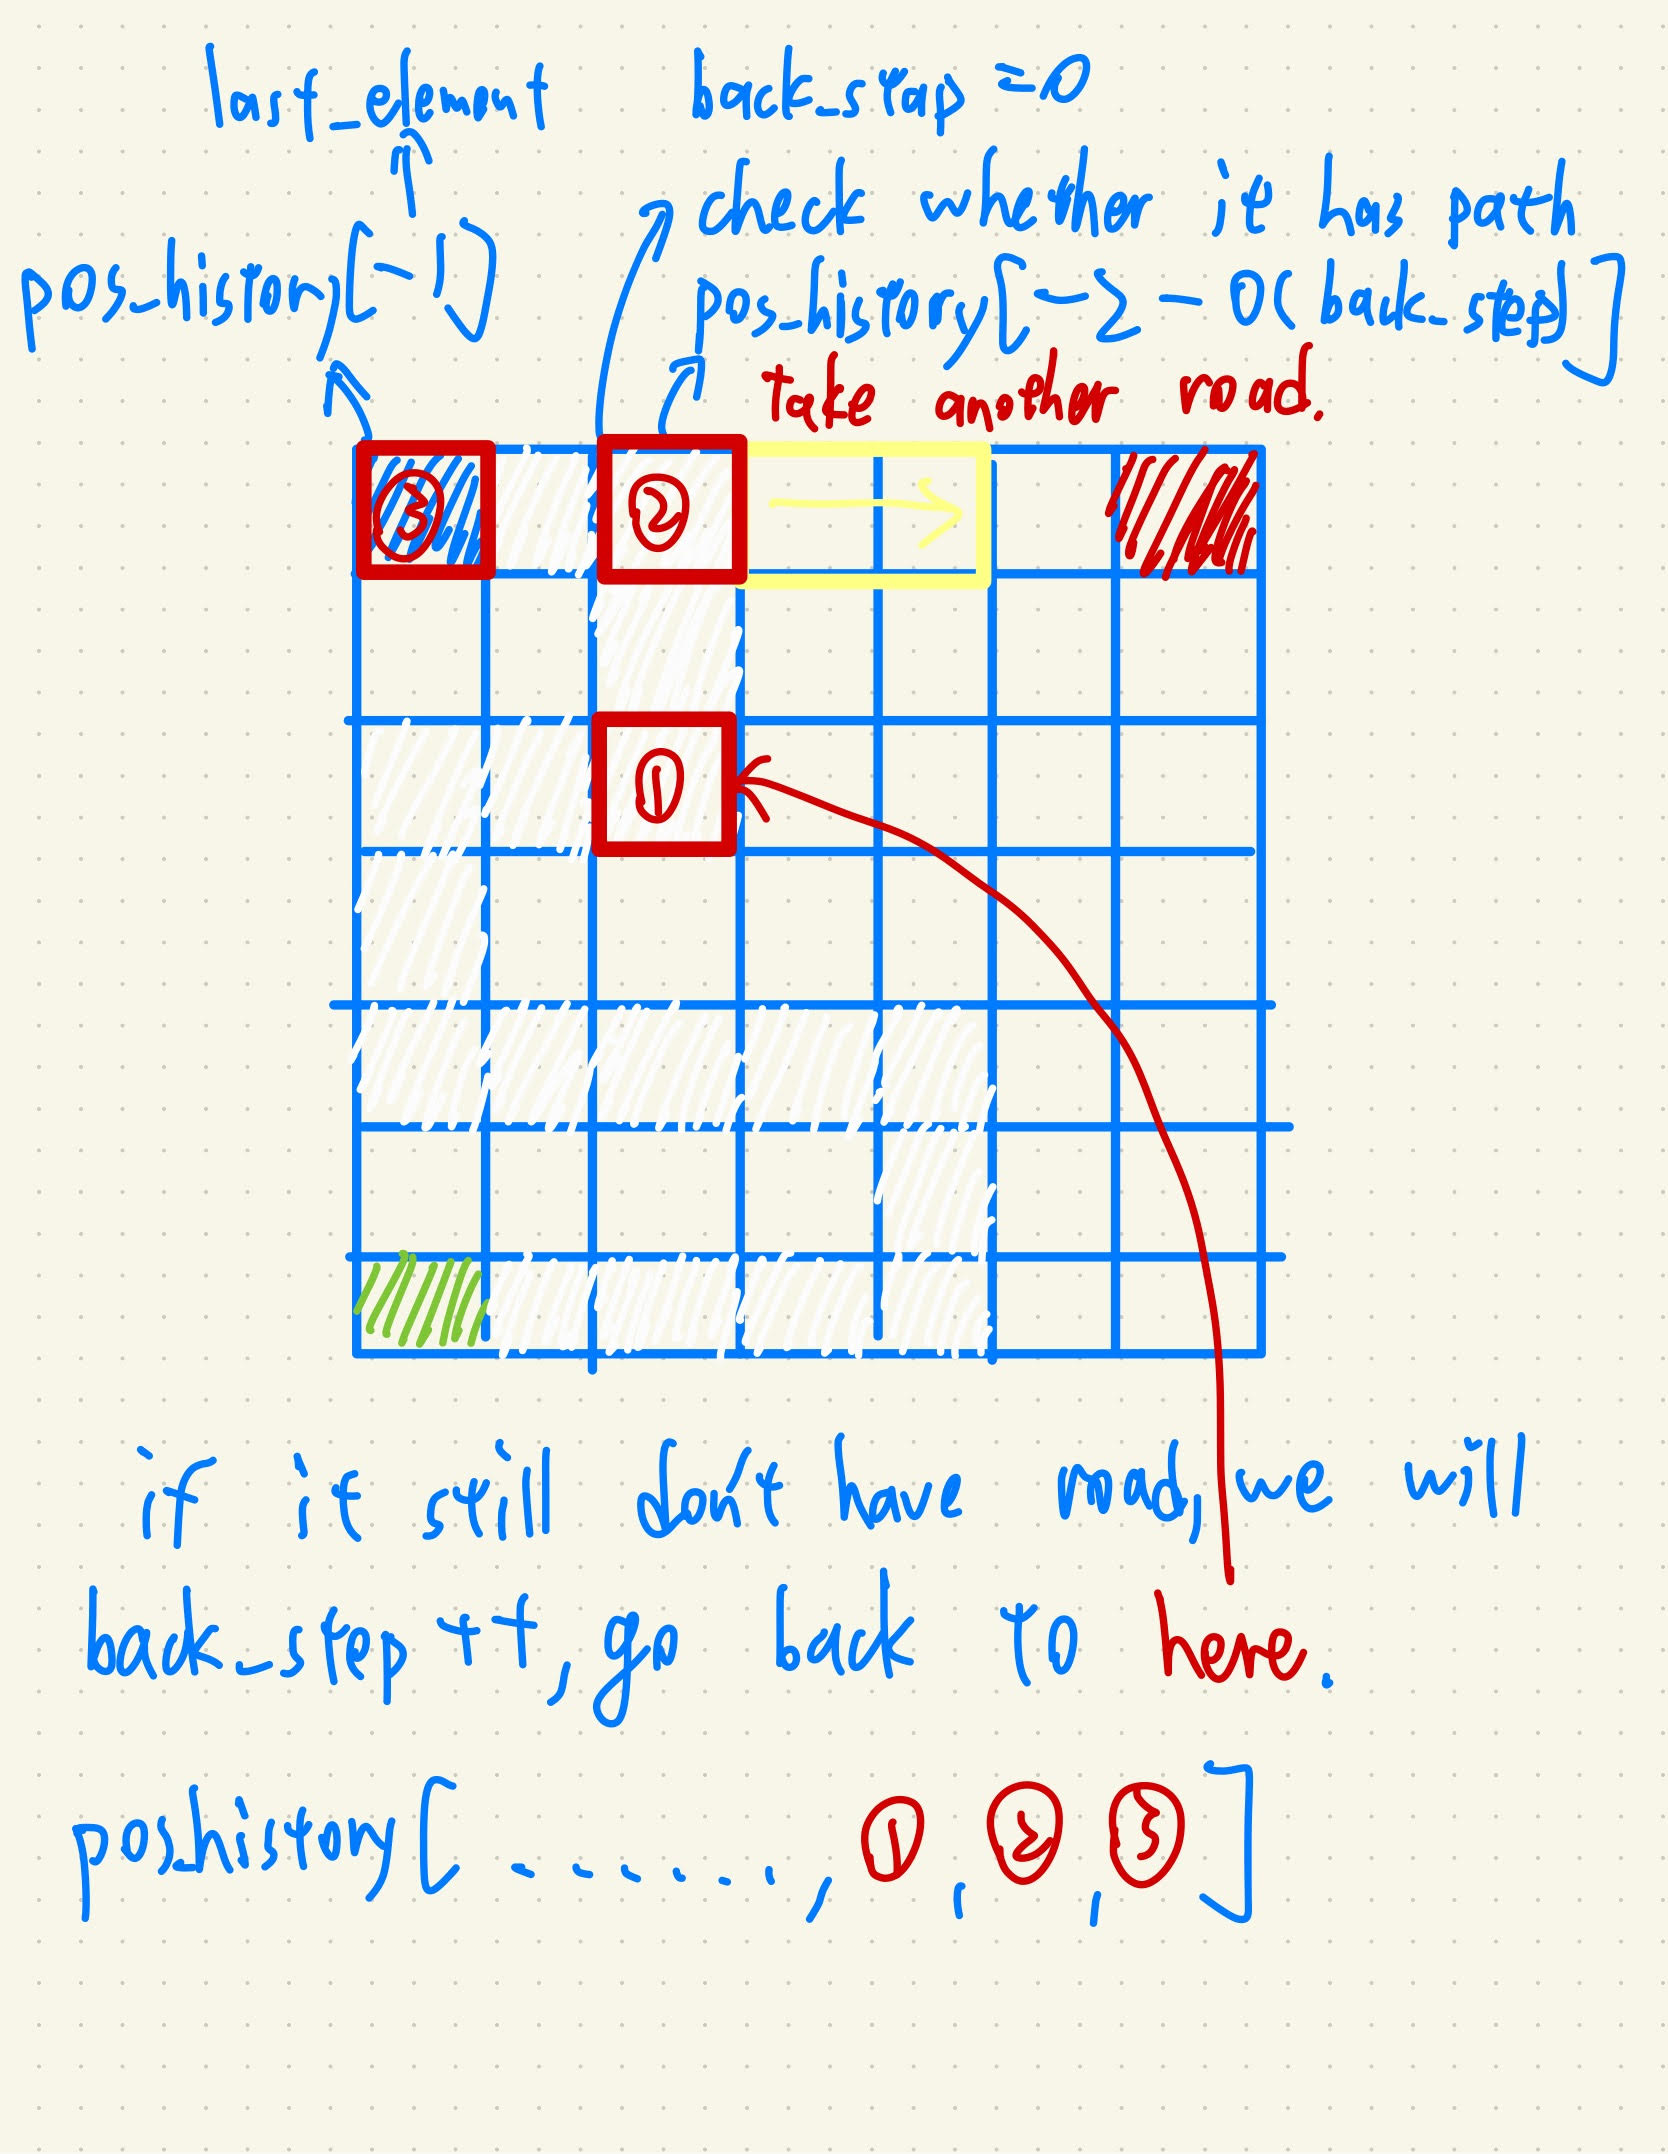 last_element
back_stap =0
check whether it has path
pos_history[-1]
pos_history[-2-0(back_step)]
take another road.
③
②
①
if it still don't have road, we will
back_step ++, go back to here.
pos_history[.......,①,②,③]